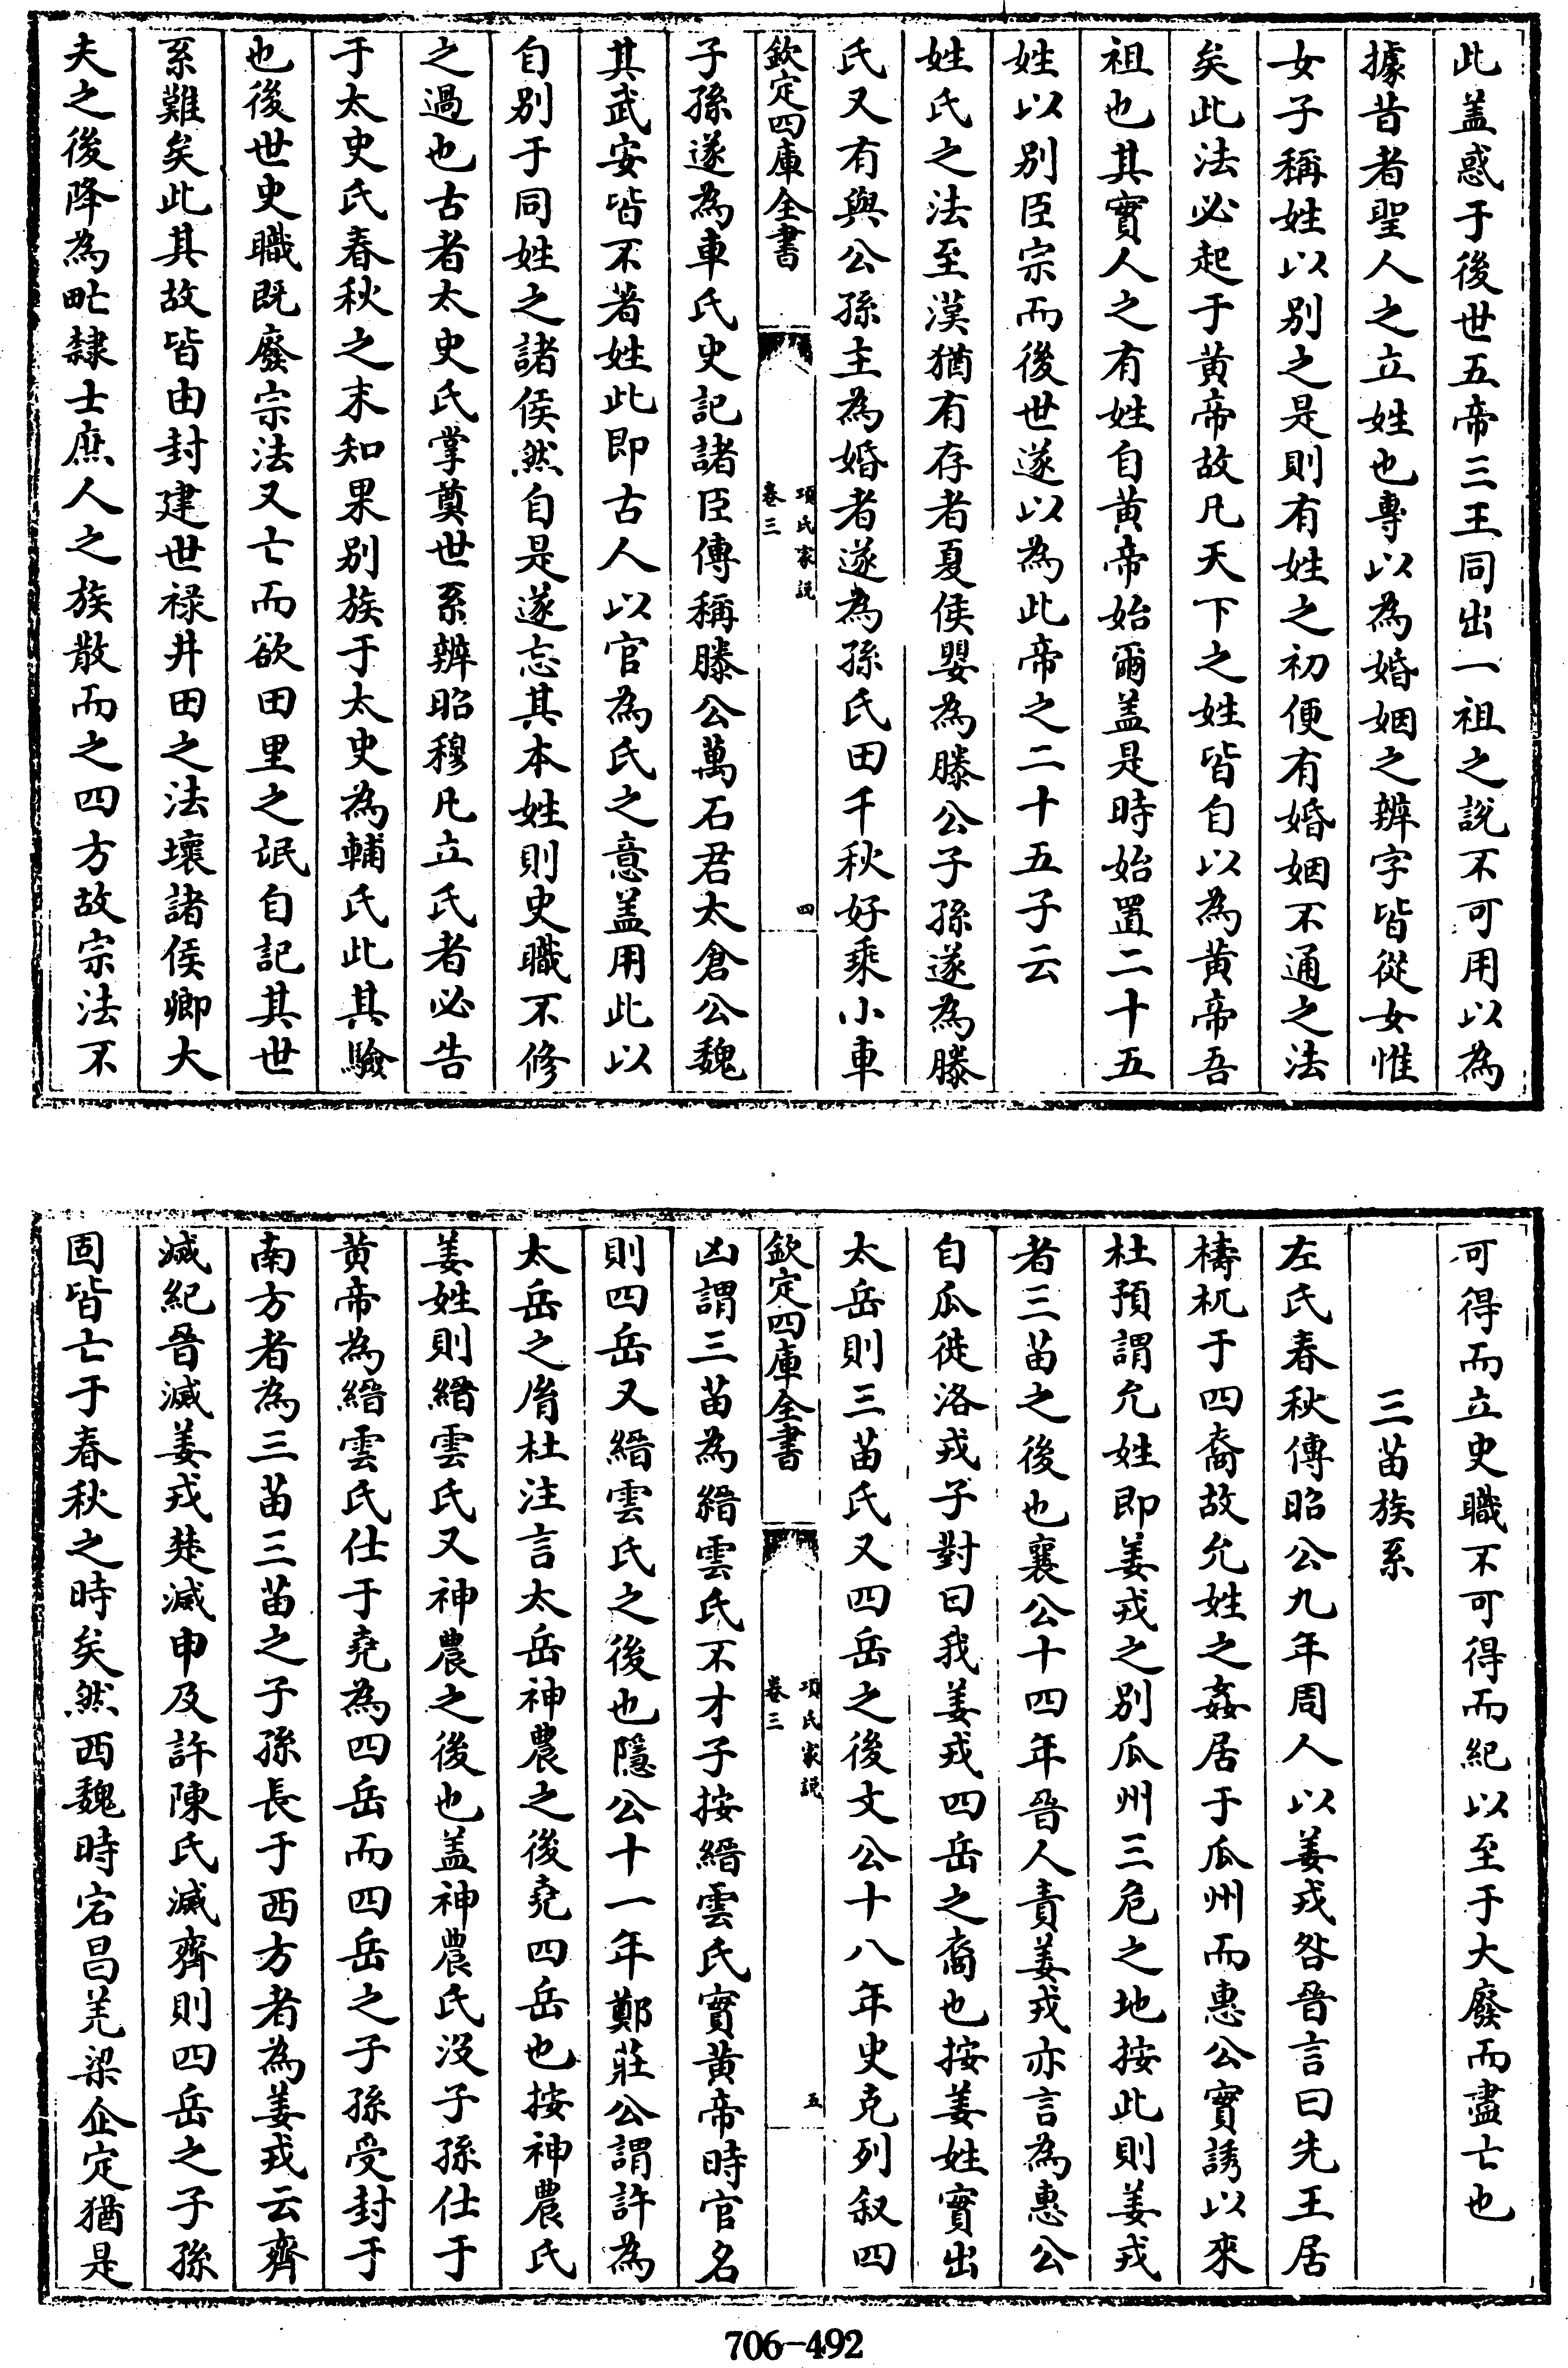 此盖惑于後世五帝三王同出一祖之說不可用以為
據昔者聖人之立姓也專以為婚姻之辨字皆從女惟
女子稱姓以别之是則有姓之初便有婚姻不通之法
矣此法必起于黄帝故凡天下之姓皆自以為黄帝吾
祖也其實人之有姓自黄帝始爾盖是時始置二十五
姓以别臣宗而後世遂以為此帝之二十五子云
姓氏之法至漢猶有存者夏侯嬰為滕公子孫遂為滕
氏又有與公孫主為婚者遂為孫氏田千秋好乘小車
欽定四庫全書
項氏家說
卷三
四
子孫遂為車氏史記諸臣傳稱滕公萬石君太倉公魏
其武安皆不著姓此即古人以官為氏之意盖用此以
自别于同姓之諸侯然自是遂忘其本姓則史職不修
之過也古者太史氏掌奠世系辨昭穆凡立氏者必告
于太史氏春秋之末知果别族于太史為輔氏此其驗
也後世史職既廢宗法又亡而欲田里之氓自記其世
系難矣此其故皆由封建世禄井田之法壞諸侯卿大
夫之後降為甿隸士庶人之族散而之四方故宗法不
可得而立史職不可得而紀以至于大廢而盡亡也
三苗族系
左氏春秋傳昭公九年周人以姜戎咎晉言曰先王居
檮杌于四裔故允姓之姦居于瓜州而惠公實誘以來
杜預謂允姓即姜戎之别瓜州三危之地按此則姜戎
者三苗之後也襄公十四年晉人責姜戎亦言為惠公
自瓜徙洛戎子對曰我姜戎四岳之裔也按姜姓實出
太岳則三苗氏又四岳之後文公十八年史克列叙四
欽定四庫全書
項氏家說
卷三
五
凶謂三苗為縉雲氏不才子按縉雲氏實黄帝時官名
則四岳又縉雲氏之後也隱公十一年鄭莊公謂許為
太岳之胄杜注言太岳神農之後堯四岳也按神農氏
姜姓則縉雲氏又神農之後也盖神農氏没子孫仕于
黄帝為縉雲氏仕于堯為四岳而四岳之子孫受封于
南方者為三苗三苗之子孫長于西方者為姜戎云齊
滅紀晉滅姜戎楚滅申及許陳氏滅齊則四岳之子孫
固皆亡于春秋之時矣然西魏時宕昌羌梁企定猶是
706-492